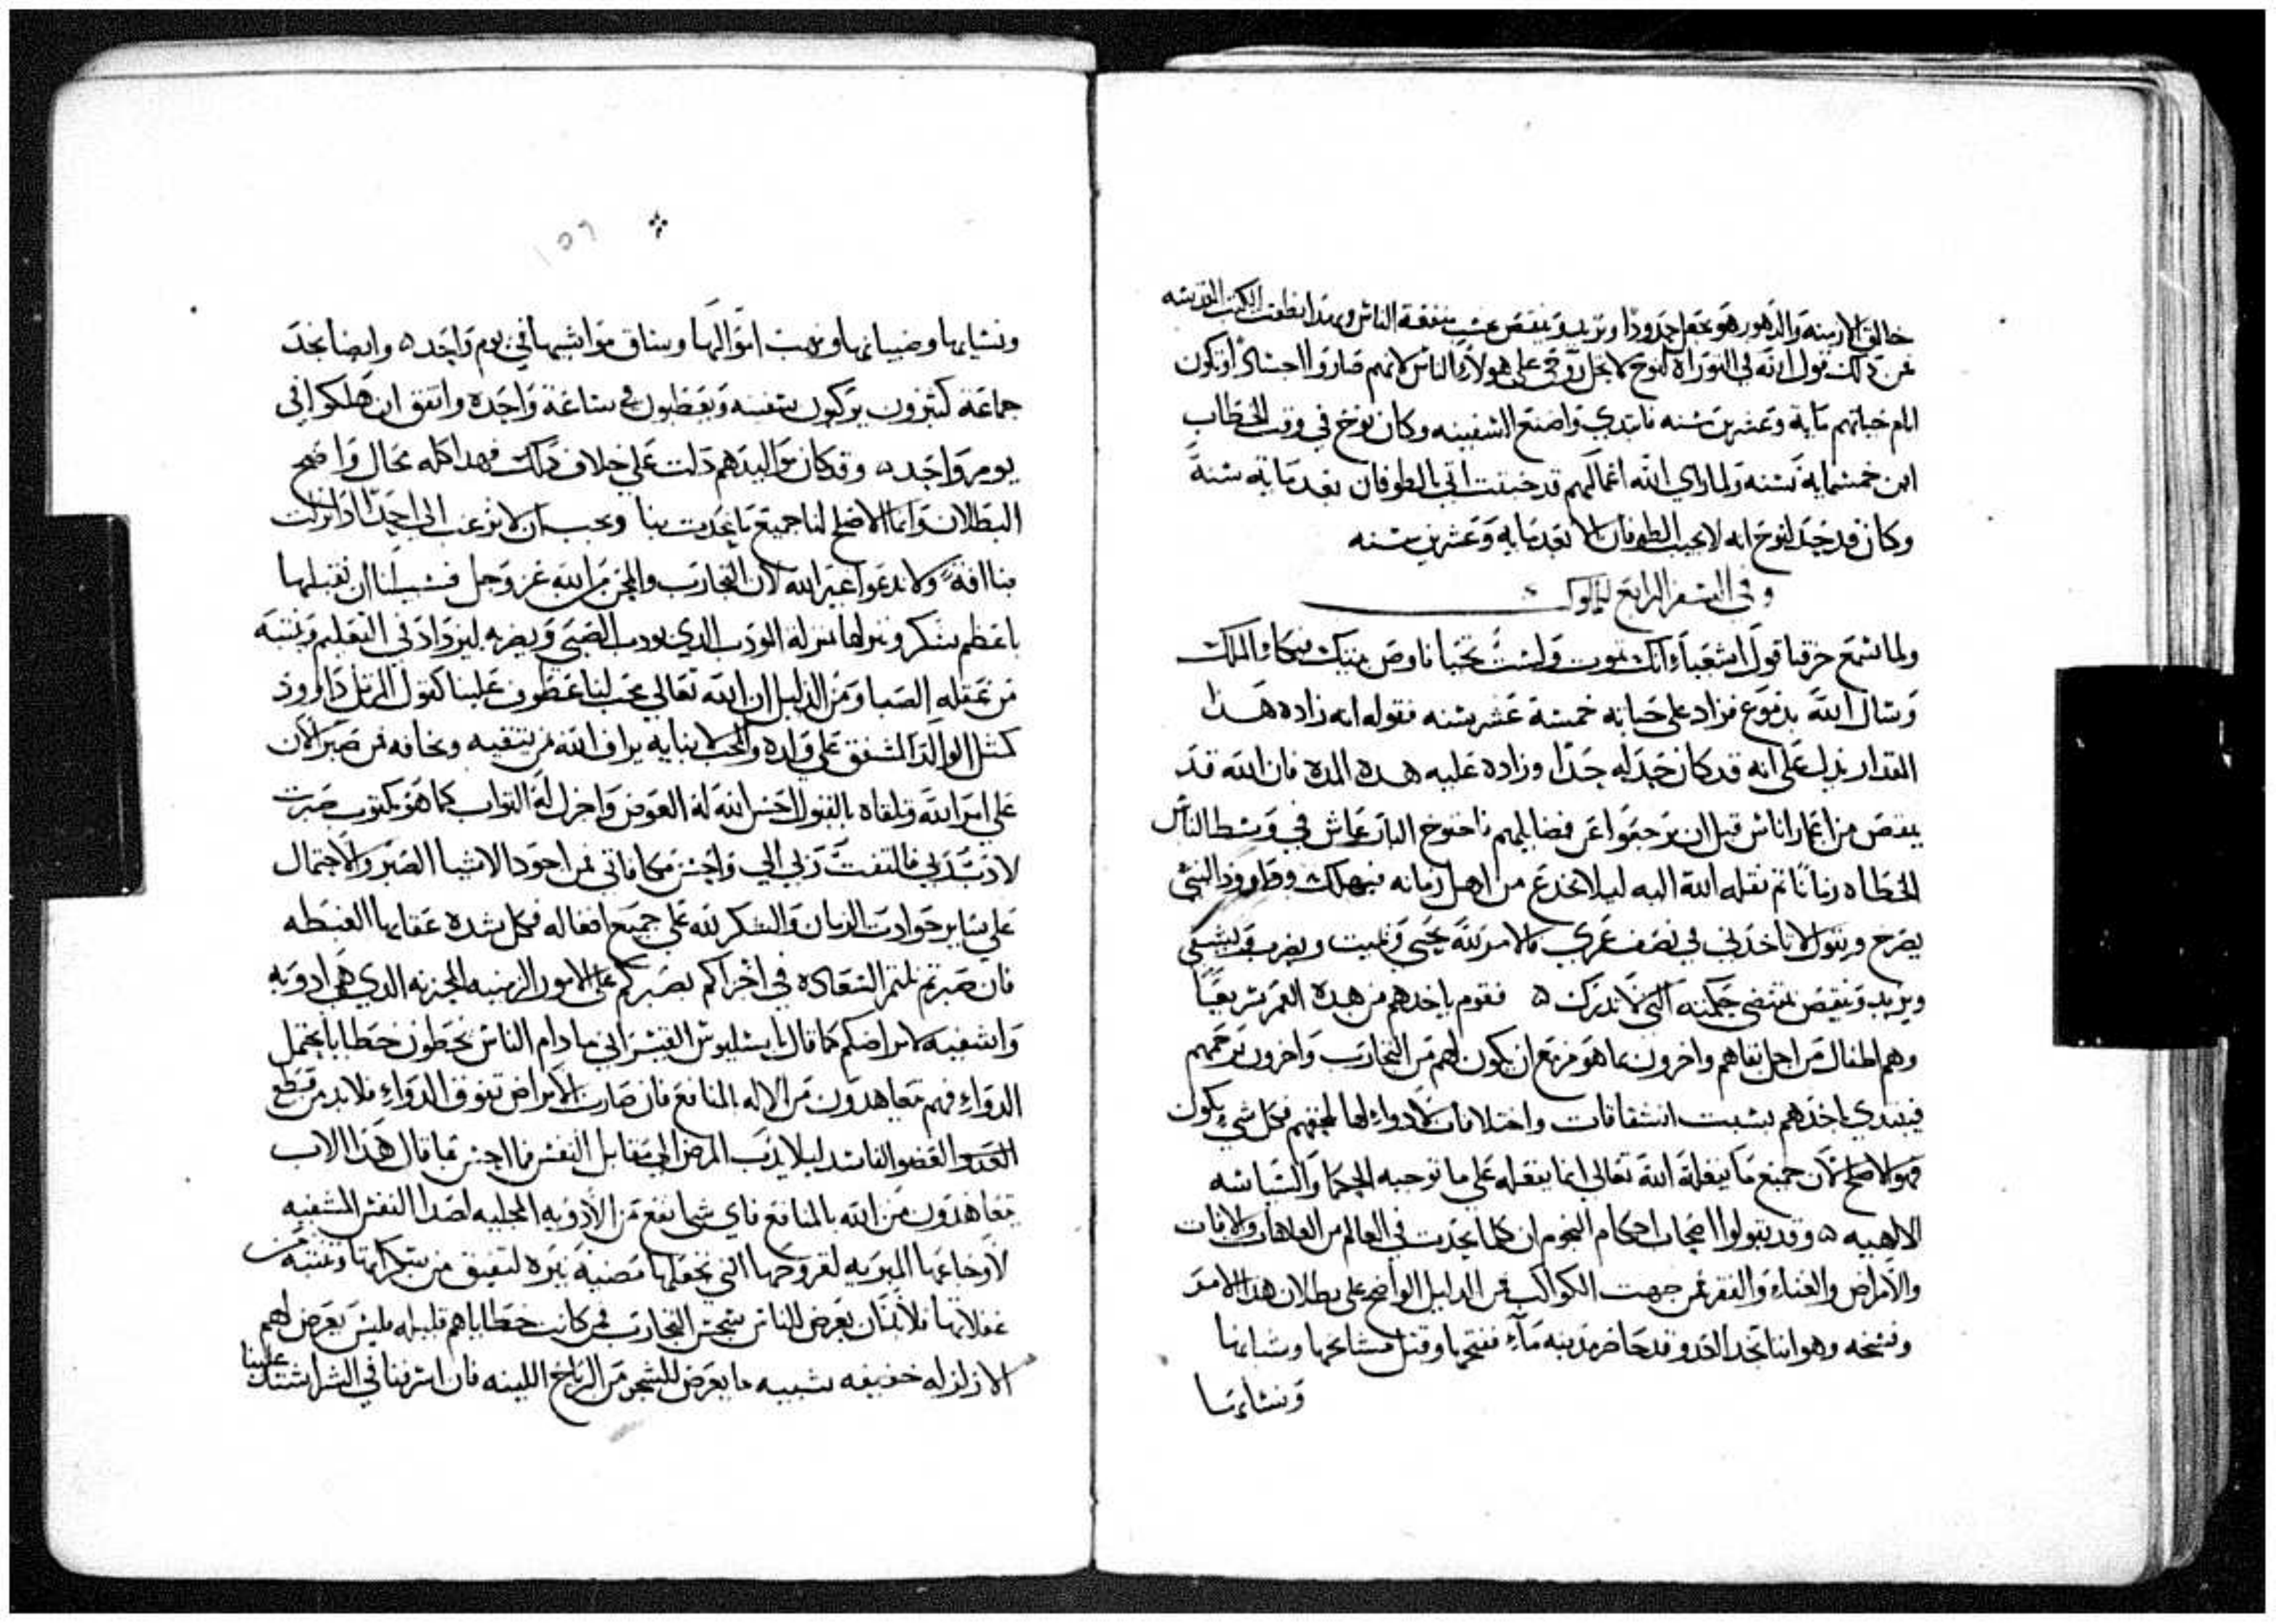 خالق الازمنه والدهور هو يجعل حدودا ويزيد وينقص بحسب منفعة الناس وبهدا نطقت الكتب المقدسه
عن دلك قول الله في التوراه لنوح لا تحل روحي على هولاء الناس لانهم صاروا اجسادا وتكون
ايام حياتهم مايه وعشرين سنه فابتدي واصنع السفينه وكان نوح في وقت الخطاب
ابن خمسمايه سنه ولما راي الله اعمالهم قد خبثت اتى بالطوفان بعد مايه سنة
وكان قد حد لنوح انه لا يجيب الطوفان الا بعد مايه وعشرين سنه
وفي السفر الرابع للملوك
ولما سمع حزقيا قول اشعيا وانك تموت ولست تحيا فاوص بيتك فبكا الملك
وسال الله بدموع فزاد على حياته خمسة عشر سنه فقوله انه زاده هدا
المقدار يدل على انه قد كان حد له حدا وزاده عليه هده المده فان الله قد
ينقص من اعمار اناس قبل ان يرجعوا عن فضايلهم فاخنوخ البار عاش في وسط الناس
الخطاه زمانا ثم نقله الله اليه ليلا يخدع من اهل زمانه فيهلك وداوود النبي
يصرخ ويقول لا تاخدني في نصف عمري فالامر لله يحيي ويميت ويضرب ويشفي
ويزيد وينقص بمقتضى حكمته التي لا تدرك فقوم ياخدهم من هده العمر سريعا
وهم اطفال من اجل نقاهم واخرون بما هو مزمع ان يكون لهم من التجارب واخرون يرحمهم
فيبتدي ياخدهم بسبب انشقاقات واختلافات لا دواء لها تلحقهم فكل شي يكون
فهو الاصلح لان جميع ما يفعله الله تعالى انما يفعله على ما توجبه الحكمه والسياسه
الالاهيه وقد يقولوا اصحاب احكام النجوم ان كلما يحدث في العالم من العاهات والافات
والامراض والغناء والفقر من جهت الكواكب فمن الدليل الواضح على بطلان هدا الامر
وفسخه وهو اننا نجد العدو قد حاصر مدينه ماء ففتحها وقتل مشايخها وشبانها
ونساءها
١٥٦
ونسايها وصبيانها ونهب اموالها وساق مواشيها في يوم واحد وايضا نجد
جماعة كثيرون يركبون سفينه ويعطبون في ساعة واحده واتفق ان هلكوا في
يوم واحد وقد كان مواليدهم دلت على خلاف دلك فهدا كله محال واضح
البطلان وانما الاصلح لنا جميع ما يحدث بنا ويجب ان لا نرغب الى احد ادا نزلت
بنا افة ولا ندعوا غير الله لان التجارب والمحن من الله عز وجل فسبيلنا ان نقبلها
باعظم شكر وننزلها منزلة المودب الدي يودب الصبي ويضربه ليزداد في التعليم وينتبه
من غفلة الصبا ومن الدليل ان الله تعالى محب لنا عطوف علينا كقول المرتل داوود
كمثل الوالد المشفق على ولده والمحب لابنايه يراف الله بمن يتقيه ويخافه فمن صبر الان
على امر الله وتلقاه بالقبول احسن الله له العوض واجزل له الثواب كما هو مكتوب صبرت
لادب ربي فالتفت ربي الي واحسن مكافاتي فمن اجود الاشيا الصبر والاحتمال
على ساير حوادث الزمان والشكر لله على جميع افعاله فكل شده عقابها الغبطه
فان صبرتم نلتم السعاده في اخراكم بصبركم على الامور الزمنيه المحزنه الدي هي ادويه
واشفيه لامراضكم كما قال باسيليوس القيسراني ما دام الناس يخطون خطايا تحتمل
الدواء فهم متعاهدون من الاله بالمنافع فان صارت الامراض تفوق الدواء فلا بد من قطع
العضو الفاسد ليلا يدب المرض الى مقابل النفس فما احسن ما قال هدا الاب
متعاهدون من الله بالمنافع فاي شي انفع من الادويه المجليه لصدا النفس المشفيه
لاوجاعها المبريه لقروحها التي تجعلها مضيه نيره لتفيق من سكرتها وتنتبه من
غفلاتها فلا بد ان يعرض للناس بحسب التجارب فمن كانت خطاياهم قليله فليس يعرض لهم
الا زلزله خفيفه شبيه ما يعرض للشجر من الرياح اللينه فان اسرفنا في الشر اشتد علينا